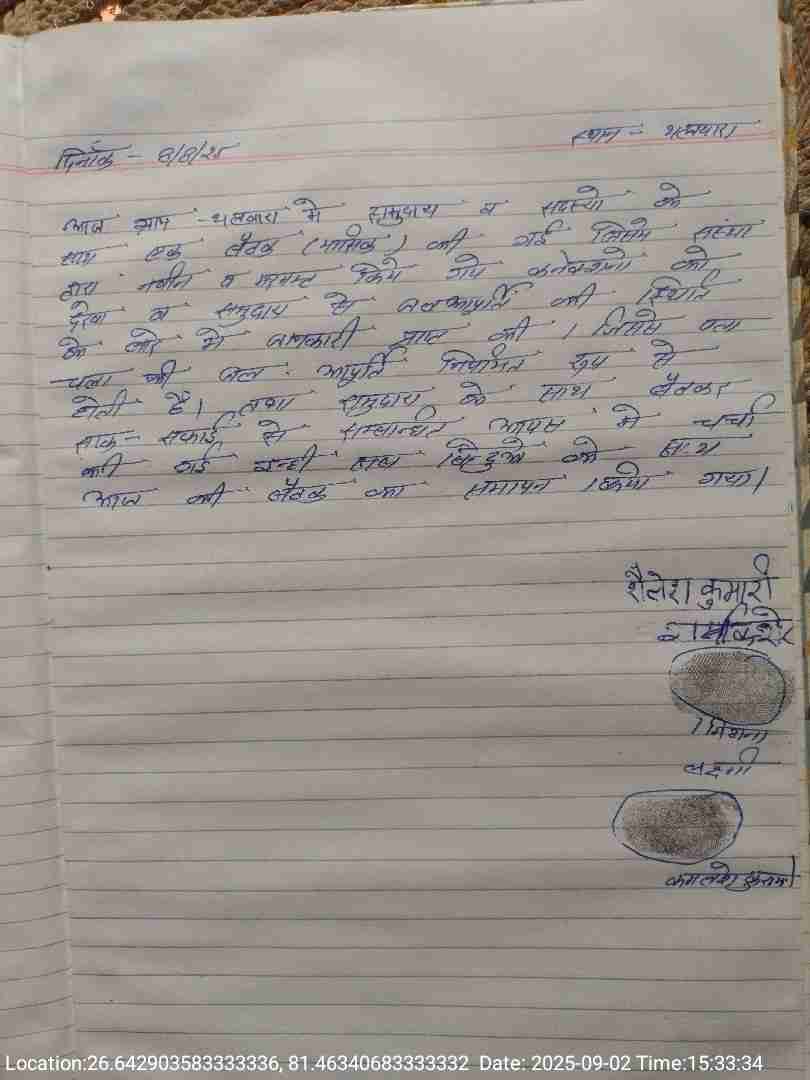 दिनाँक - 8/8/25 स्थान -
आज ग्राम में समुदाय व सदस्यो के
साथ एक बैठक (मासिक) की गई जिसमे संस्था
द्वारा नवीन व किये गये कनेक्शनो को
देखा व समुदाय से जलआपूर्ति की स्थिति
के बारे में जानकारी प्राप्त की । जिसमे पता
चला की जल आपूर्ति नियमित रूप से
होती है। तथा समुदाय के साथ बैठकर
साफ-सफाई से सम्बन्धित आपस मे चर्चा
की गई इन्ही सब बिन्दुओ के साथ
आज की बैठक का समापन किया गया।
शैलेश कुमारी
रामकिशोर
लक्ष्मी
Location:26.642903583333336, 81.46340683333332 Date: 2025-09-02 Time:15:33:34